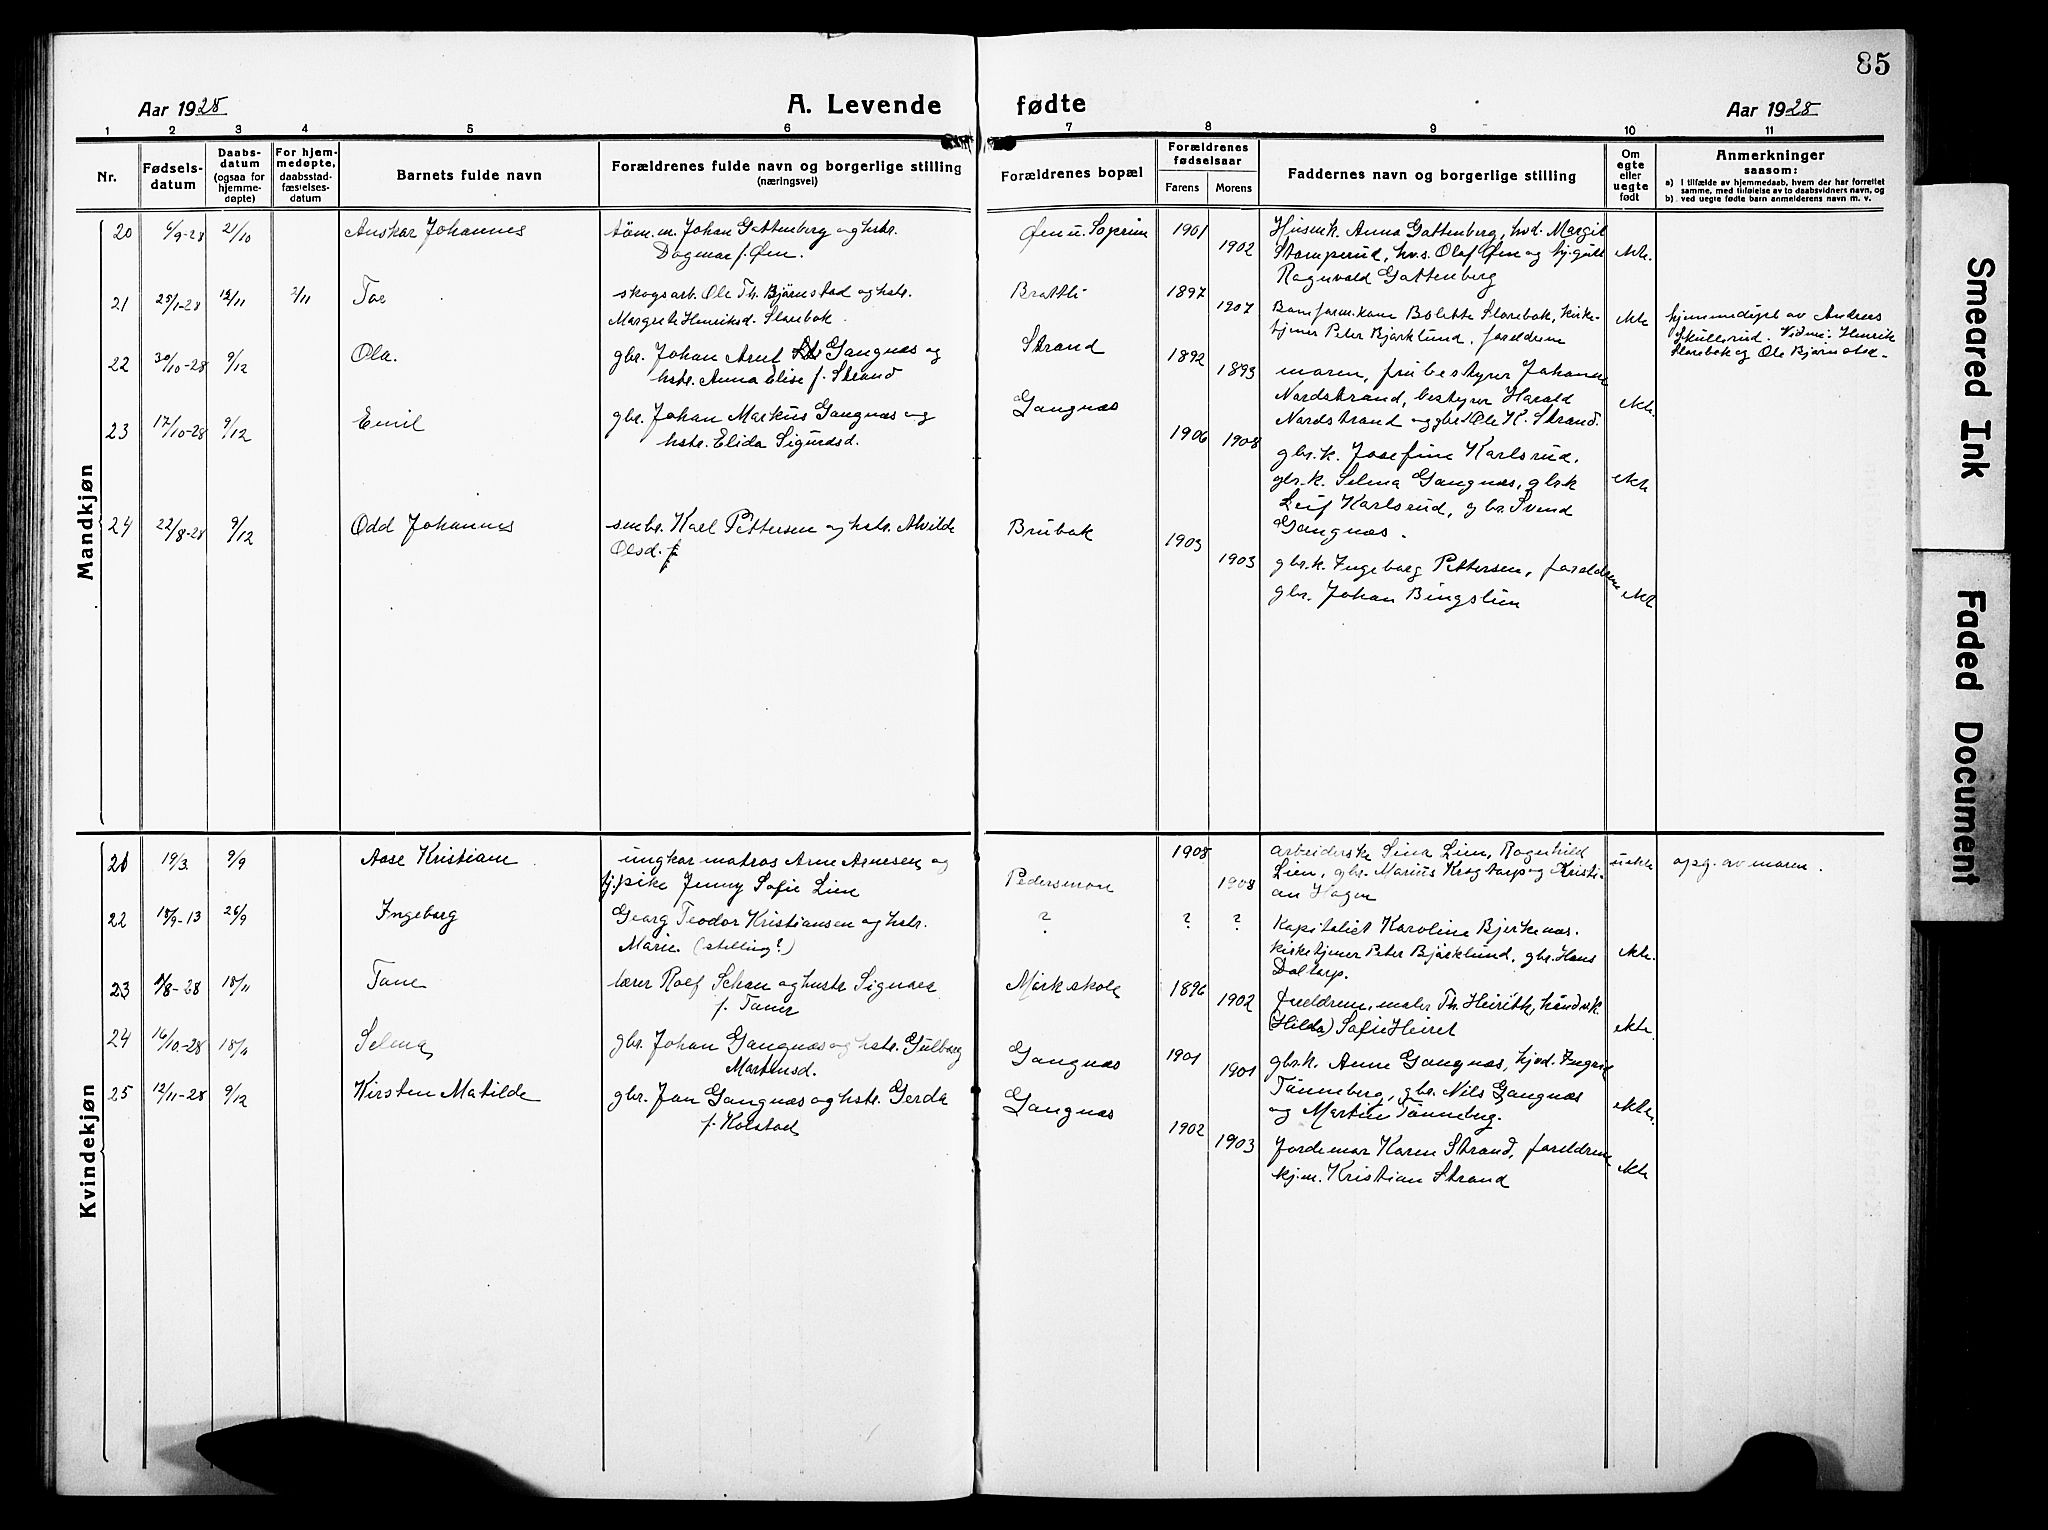 85
Aar 1928
A. Levende fødte
Aar 1928
1 2 3 4 5 6 7 8 9 10 11
Nr.
Fødsels-
datum
Daabs-
datum
(ogsaa for
hjemme-
døpte)
For hjem-
medøpte,
daabsstad-
fæstelses-
datum
Barnets fulde navn
Forældrenes fulde navn og borgerlige stilling
(næringsvei)
Forældrenes bopæl
Forældrenes
fødselsaar
Farens Morens
Faddernes navn og borgerlige stilling
Om
egte
eller
uegte
født
Anmerkninger
saasom:
a) I tilfælde av hjemmedaab, hvem der har forrettet
samme, med tilføielse av to daabsvidners navn, og
b) ved uegte fødte barn anmelderens navn m. v.
Mandkjøn
20 6/9-28 21/10 Anskar Johannes
tøm.m. Johan Gattenberg og hstr.
Dagmar f. Øen.
Øen u. 1901 1902
Husm.k. Anna Gattenberg, Margit
Stamperud, Olaf Øen og
Ragnvald Gattenberg
ekte.
21 25/1-28 18/11 2/11
skogsarb. Ole Th. Bjørnstad og hstr.
Margrete Henriksd. Slorebak.
Brattli 1897 1907
Bolette Slorebak, kirke-
tjener Peter Bjørklund, foreldrene
ekte
hjemmedøpt av Anders
Skullerud. Vidner: Henrik
Slorebak og Ole Bjørnstad.
22 30/10-28 9/12 Ola.
gbr. Johan Arnt Gangnæs og
hstr. Anna Elise f. Strand
Strand 1892 1893
moren, fru bestyrer Johanne
Nordstrand, bestyrer Harald
Nordstrand og gbr. Ole K. Strand.
ekte.
23 17/10-28 9/12 Emil
gbr. Johan Markus Gangnæs og
hstr. Elida Sigurdsd.
Gangnæs 1906 1908
gbr.k. Josefine Karlsrud,
gbr.k. Selma Gangnæs, gbr.
Leif Karlsrud, gbr. Svend
Gangnæs.
ekte
24 22/8-28 9/12 Odd Johannes
smbr. Karl Pettersen og hstr. Alvilde
Olsd.
Brubak 1903 1903
gbr.k. Ingeborg Pettersen, foreldrene
gbr. Johan Bingslien
ekte
Kvindekjøn
21 19/3. 9/9 Aase Kristiane
ungkar matros Arne Arnesen og
tj.pike Jenny Sofie Lien
Pedersmon 1908 1908
arbeiderske Sina Lien, Ragnhild
Lien, gbr. Marius Krogtorp og Kristi-
an Hagen
uekte opg. av moren.
22 18/9-13 26/9 Ingeborg
Georg Teodor Kristiansen og hstr.
Marie. (stilling?)
? ? ?
Kapitalist Karoline Bjerkenæs.
kirketjener Peter Bjørklund, gbr. Hans
Daltorp.
ekte.
23 8/8-28 18/11 Tane
lærer Rolf Schau og hustr. Signora
f. Taner
Mørk skole 1896 1902
foreldrene, maler Th. Heiret
(Hilda) Sofie Heiret
ekte
24 16/10-28 18/11 Selma
gbr. Johan Gangnæs og hstr. Gulborg
Martinsd.
Gangnæs 1901 1901
gbr.k. Anne Gangnæs, Ingrid
Tønneberg, gbr. Nils Gangnæs
og Martin Tønneberg.
ekte.
25 12/11-28 9/12 Kirsten Matilde
gbr. Jan Gangnæs og hstr. Gerda
f. Kolstad
Gangnæs 1902 1903
Jordemor Karen Strand, foreldrene
kjm. Kristian Strand
ekte
Smeared Ink
Faded Document